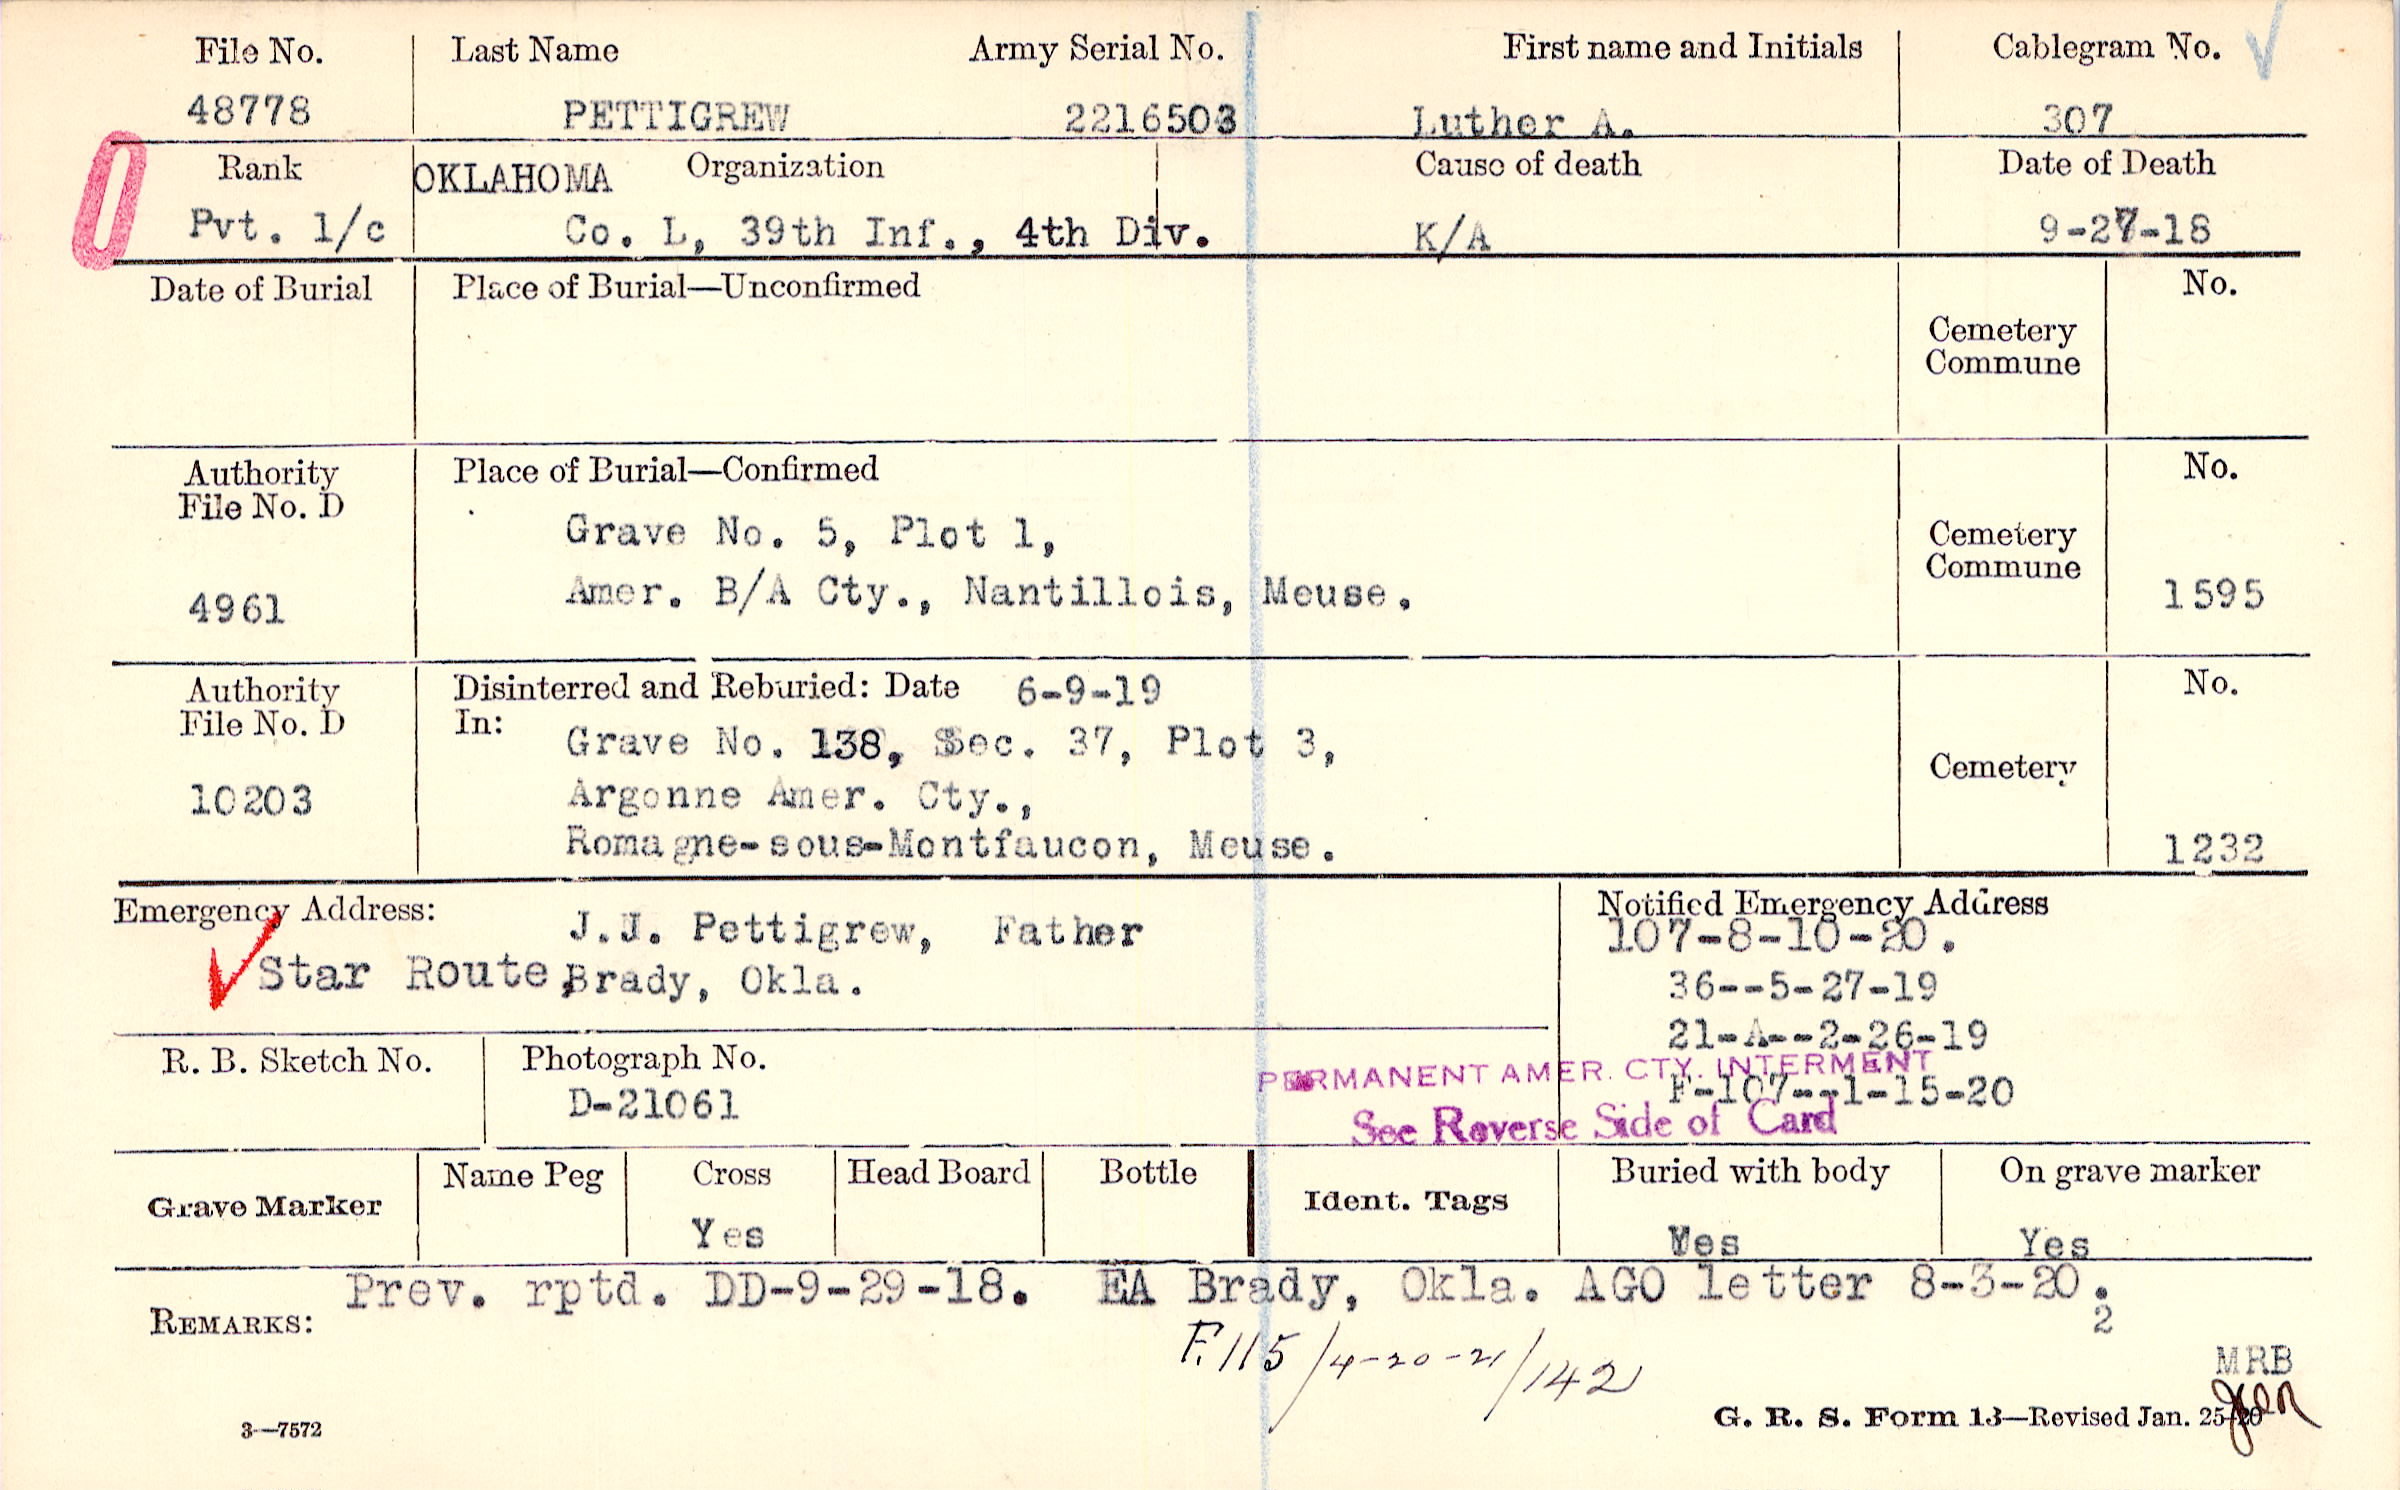 File No. Last Name Army Serial No. First name and Initials Cablegram No.
48778 PETTIGREW 2216503 Luther A. 307
Rank OKLAHOMA Organization Cause of death Date of Death
Pvt. 1/c Co. L, 39th Inf., 4th Div. K/A 9-27-18
Date of Burial Place of Burial—Unconfirmed No.
Cemetery
Commune
Authority Place of Burial—Confirmed No.
File No. D
Grave No. 5, Plot 1, Cemetery
Commune
4961 Amer. B/A Cty., Nantillois, Meuse. 1595
Authority Disinterred and Reburied: Date 6-9-19 No.
File No. D In:
Grave No. 138, Sec. 37, Plot 3,
Cemetery
10203 Argonne Amer. Cty.,
Romagne-sous-Montfaucon, Meuse. 1232
Emergency Address: J.J. Pettigrew, Father Notified Emergency Address
107-8-10-20.
Star Route, Brady, Okla. 36--5-27-19
21-A--2-26-19
R. B. Sketch No. Photograph No. PERMANENT AMER. CTY. INTERMENT
D-21061 F-107--1-15-20
See Reverse Side of Card
Grave Marker Name Peg Cross Head Board Bottle Ident. Tags Buried with body On grave marker
Yes Yes Yes
REMARKS: Prev. rptd. DD-9-29-18. EA Brady, Okla. AGO letter 8-3-20.
2
F.115/4-20-21/142
MRB
3—7572 G. R. S. Form 13—Revised Jan. 25-20